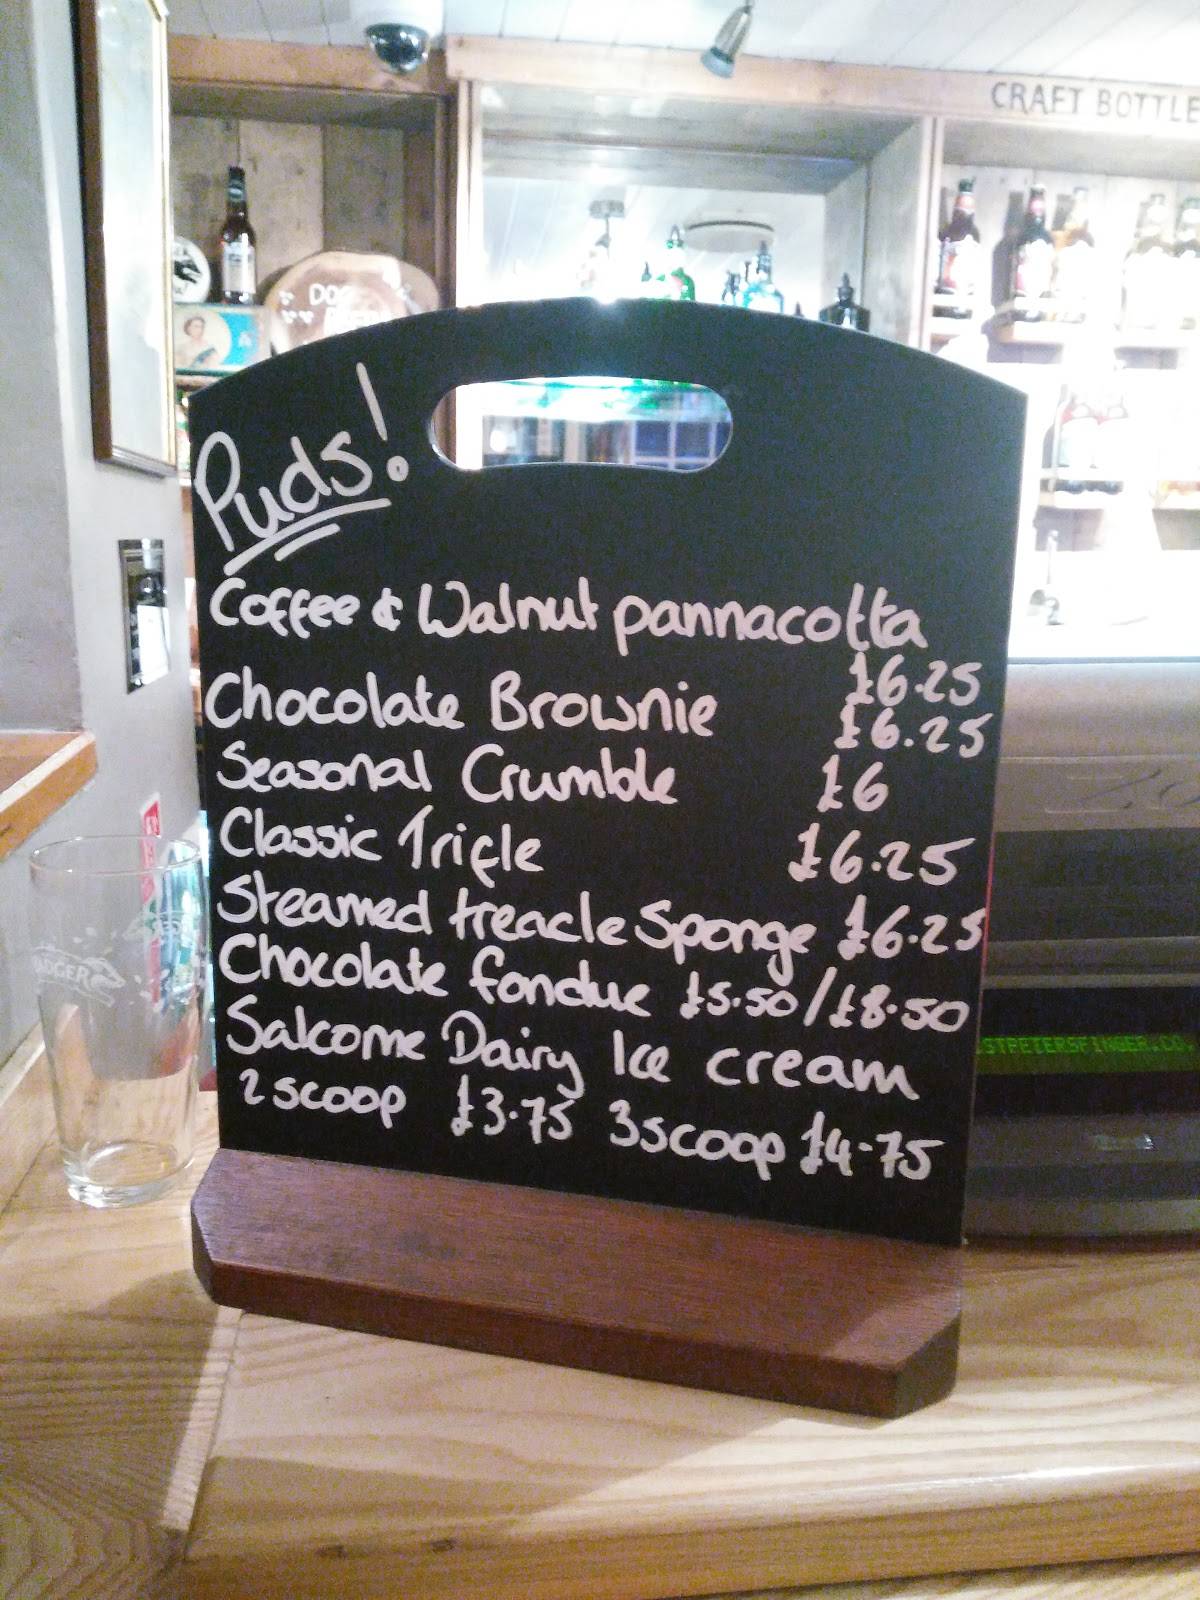 CRAFT BOTTLE
Puds!
Coffee & Walnut pannacotta
£6.25
Chocolate Brownie £6.25
Seasonal Crumble £6
Classic Trifle £6.25
Steamed treacle Sponge £6.25
Chocolate fondue £5.50/£8.50
Salcome Dairy Ice cream
2 scoop £3.75 3 scoop £4.75
BADGER
STPETERSFINGER.CO.